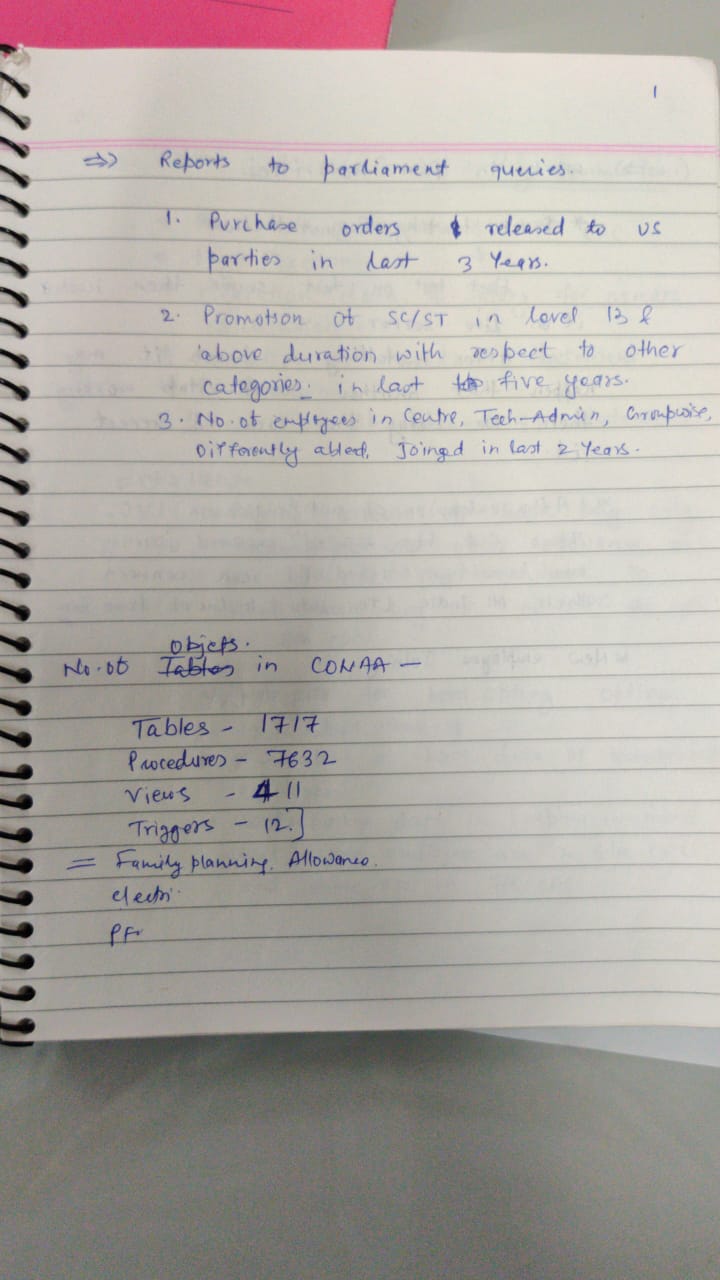 1
=>> Reports to parliament queries.
1. Purchase orders released to US
parties in last 3 Years.
2. Promotion of SC/ST in level 13 &
above duration with respect to other
categories. in last five years.
3. No. of employees in Centre, Tech-Admin, Groupwise,
Differently abled, joined in last 2 Years.
Objets.
No. of Tables in CONAA -
Tables - 1717
Procedures - 7632
Views - 411
Triggers - 12.]
= Family planning. Allowance.
electri.
PF